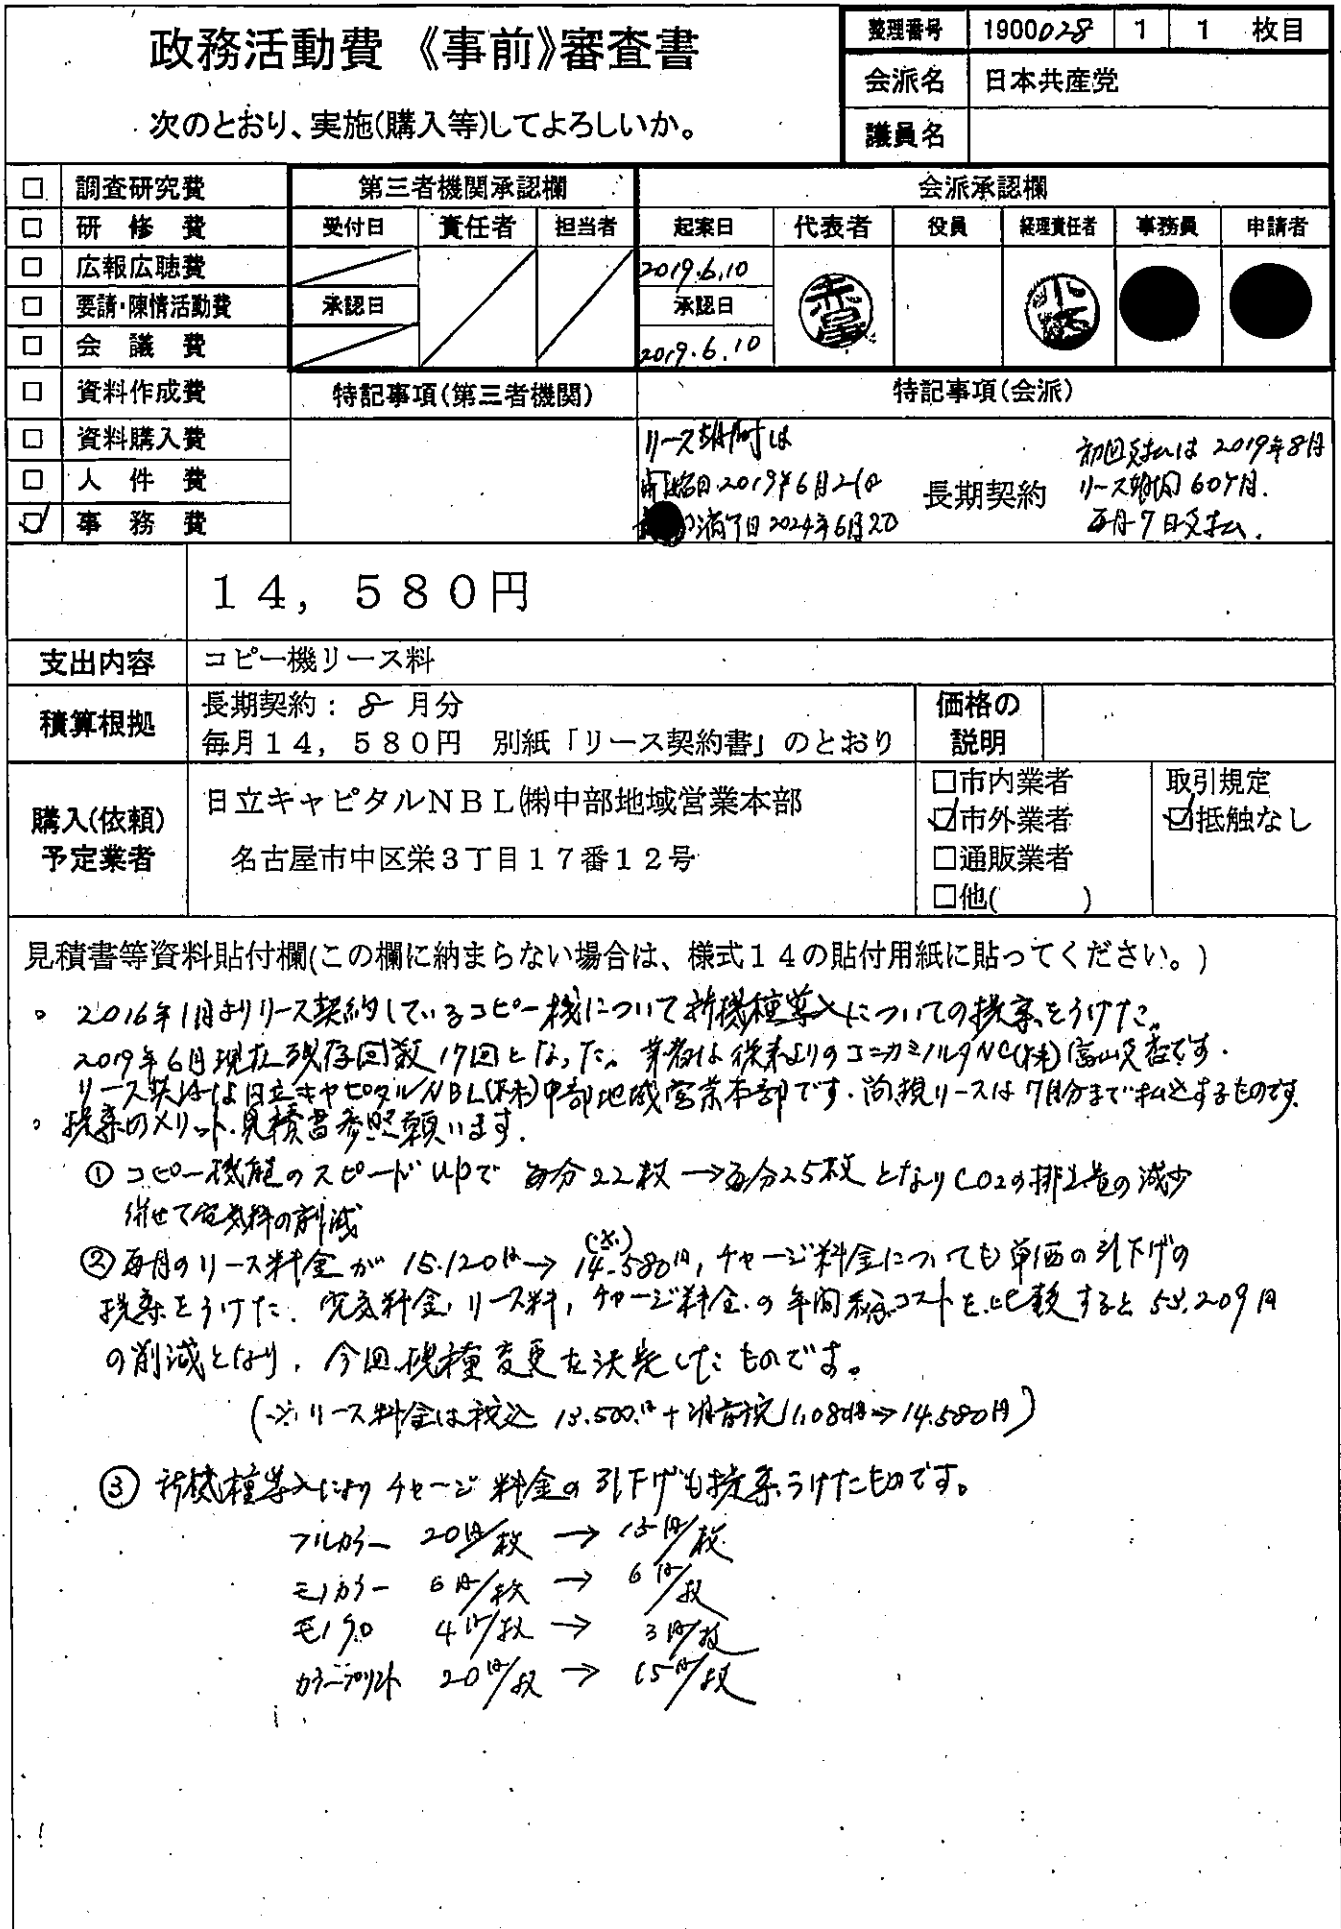 政務活動費 《事前》審査書
次のとおり、実施(購入等)してよろしいか。
整理番号 1900028 1 1 枚目
会派名 日本共産党
議員名
□ 調査研究費 第三者機関承認欄 会派承認欄
□ 研修費 受付日 責任者 担当者 起案日 代表者 役員 経理責任者 事務員 申請者
□ 広報広聴費 2019.6.10
□ 要請・陳情活動費 承認日 承認日
□ 会議費 2019.6.10
□ 資料作成費 特記事項(第三者機関) 特記事項(会派)
□ 資料購入費
□ 人件費
☑ 事務費
リース
開始日 2019年6月21日
満了日 2024年6月20
長期契約
初回支払は 2019年8月
リース期間 60ヶ月.
毎月7日支払.
14,580円
支出内容 コピー機リース料
積算根拠 長期契約: 8 月分
毎月14,580円 別紙「リース契約書」のとおり
価格の説明
購入(依頼)予定業者
日立キャピタルNBL㈱中部地域営業本部
名古屋市中区栄3丁目17番12号
□市内業者
☑市外業者
□通販業者
□他( )
取引規定
☑抵触なし
見積書等資料貼付欄(この欄に納まらない場合は、様式14の貼付用紙に貼ってください。)
。 2016年1月よりリース契約しているコピー機について新機種導入についての提案をうけた。
2019年6月現在残存回数17回となった。業者は従来よりのコニカミノルタNC(株)富山支店です.
リース契約は日立キャピタルNBL(株)中部地域営業本部です.尚、現リースは7月分まで払込するものです.
。 提案のメリット.見積書参照願います.
① コピー機能のスピードupで 毎分22枚→毎分25枚となりCO2の排出量の減少
併せて電気料の削減
② 毎月のリース料金が 15.120円→ 14.580円(※), チャージ料金についても単価の引下げの
提案をうけた. 電気料金,リース料,チャージ料金.の年間総コストを比較すると 55.209円
の削減となり, 今回機種変更を決定したものです。
(※リース料金は税込 13.500円+消費税1,080円→14.580円)
③ 新機種導入によりチャージ料金の引下げも提案うけたものです。
フルカラー 20円/枚 → 15円/枚
モノカラー 6円/枚 → 6円/枚
モノクロ 4円/枚 → 3円/枚
カラープリント 20円/枚 → 15円/枚